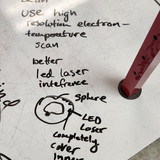 use high
resolution electron-
temperature
scan
better
led laser
inteference
sphere
LED
Laser
completely
cover
inner